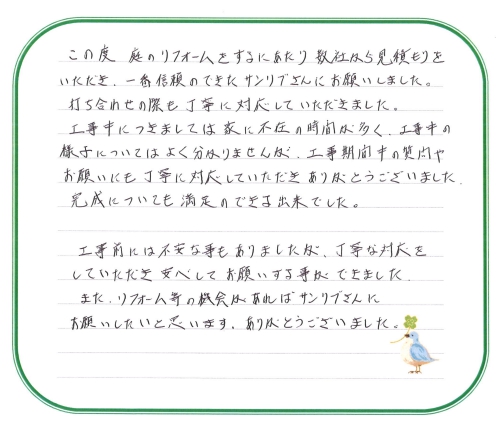 この度 庭のリフォームをするにあたり 数社から見積もりを
いただき、一番信頼のできたサンリブさんにお願いしました。
打ち合わせの際も丁寧に対応していただきました。
工事中につきましては家に不在の時間が多く、工事中の
様子についてはよく分かりませんが、工事期間中の質問や
お願いにも丁寧に対応していただきありがとうございました。
完成についても満足のできる出来でした。
工事前には不安な事もありましたが、丁寧な対応を
していただき安心してお願いする事ができました。
また、リフォーム等の機会があればサンリブさんに
お願いしたいと思います。ありがとうございました。